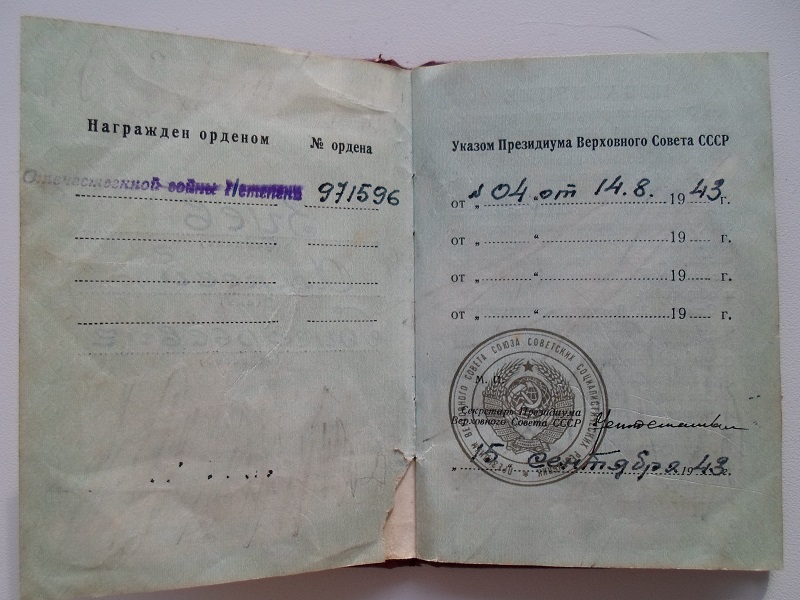 Награжден орденом № ордена
Отечественной войны II степени 971596
Указом Президиума Верховного Совета СССР
от „ 04 “ от 14.8. 1943 г.
от „ “ 19 г.
от „ “ 19 г.
от „ “ 19 г.
М. П.
ПРЕЗИДИУМ ВЕРХОВНОГО СОВЕТА СОЮЗА СОВЕТСКИХ СОЦИАЛИСТИЧЕСКИХ РЕСПУБЛИК
Секретарь Президиума
Верховного Совета СССР
„ 15 сентября 1943 г.